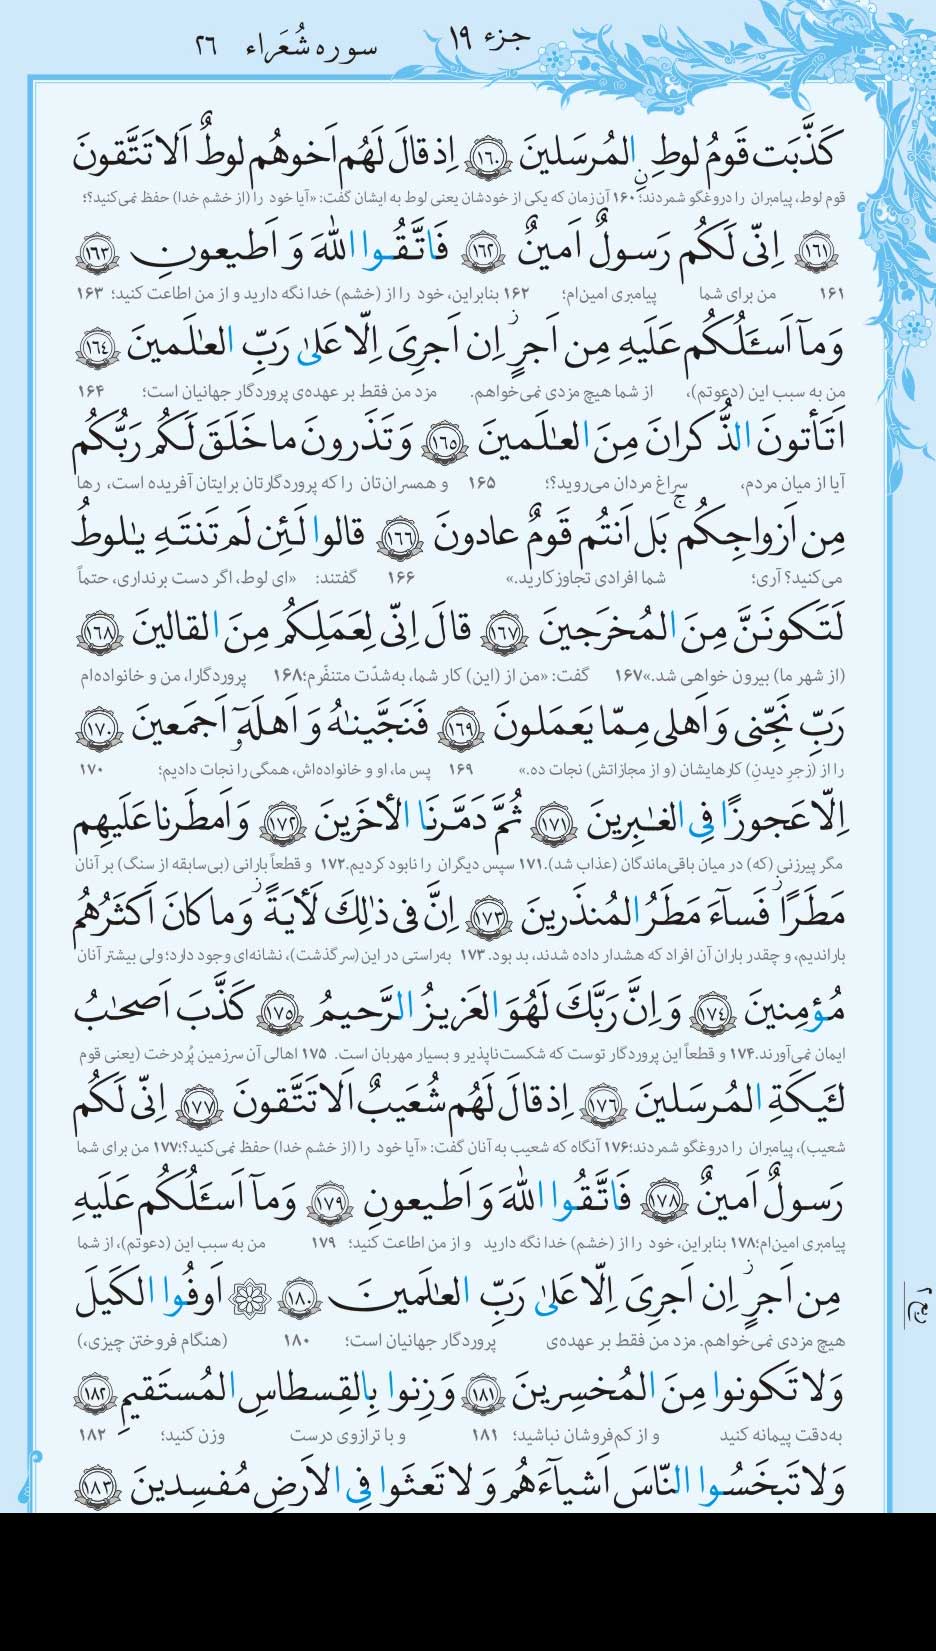 جزء ۱۹ سوره شُعَراء ۲۶
كَذَّبَت قَومُ لوطِ نِ المُرسَلينَ ﴿١٦٠﴾ اِذ قالَ لَهُم اَخوهُم لوطٌ اَلا تَتَّقونَ
قوم لوط، پیامبران را دروغگو شمردند؛ ۱۶۰ آن زمان که یکی از خودشان یعنی لوط به ایشان گفت: «آیا خود را (از خشم خدا) حفظ نمی‌کنید؟؛
﴿١٦١﴾ اِنّى لَكُم رَسولٌ اَمينٌ ﴿١٦٢﴾ فَاتَّقُوا اللهَ وَ اَطيعونِ ﴿١٦٣﴾
۱۶۱ من برای شما پیامبری امین‌ام؛ ۱۶۲ بنابراین، خود را از (خشم) خدا نگه دارید و از من اطاعت کنید؛ ۱۶۳
وَ مآ اَسـَٔلُكُم عَلَيهِ مِن اَجرٍ ز اِن اَجرِىَ اِلّا عَلىٰ رَبِّ العـٰلَمينَ ﴿١٦٤﴾
من به سبب این (دعوتم)، از شما هیچ مزدی نمی‌خواهم. مزد من فقط بر عهده‌ی پروردگار جهانیان است؛ ۱۶۴
اَتَأتونَ الذُّكرانَ مِنَ العـٰلَمينَ ﴿١٦٥﴾ وَ تَذَرونَ ما خَلَقَ لَكُم رَبُّكُم
آیا از میان مردم، سراغ مردان می‌روید؟؛ ۱۶۵ و همسران‌تان را که پروردگارتان برایتان آفریده است، رها
مِن اَزواجِكُم ج بَل اَنتُم قَومٌ عادونَ ﴿١٦٦﴾ قالوا لَئِن لَم تَنتَهِ يـٰلوطُ
می‌کنید؟ آری؛ شما افرادی تجاوزکارید.» ۱۶۶ گفتند: «ای لوط، اگر دست برنداری، حتماً
لَتَكونَنَّ مِنَ المُخرَجينَ ﴿١٦٧﴾ قالَ اِنّى لِعَمَلِكُم مِنَ القالينَ ﴿١٦٨﴾
(از شهر ما) بیرون خواهی شد.» ۱۶۷ گفت: «من از (این) کار شما، به‌شدّت متنفّرم؛ ۱۶۸ پروردگارا، من و خانواده‌ام
رَبِّ نَجِّنى وَ اَهلى مِمّا يَعمَلونَ ﴿١٦٩﴾ فَنَجَّينـٰهُ وَ اَهلَهٓو اَجمَعينَ ﴿١٧٠﴾
را از (زجرِ دیدنِ) کارهایشان (و از مجازاتش) نجات ده.» ۱۶۹ پس ما، او و خانواده‌اش، همگی را نجات دادیم؛ ۱۷۰
اِلّا عَجوزًا فِى الغـٰبِرينَ ﴿١٧١﴾ ثُمَّ دَمَّرنَا الأخَرينَ ﴿١٧٢﴾ وَ اَمطَرنا عَلَيهِم
مگر پیرزنی (که) در میان باقی‌ماندگان (عذاب شد). ۱۷۱ سپس دیگران را نابود کردیم. ۱۷۲ و قطعاً بارانی (بی‌سابقه از سنگ) بر آنان
مَطَرًا ز فَسآءَ مَطَرُ المُنذَرينَ ﴿١٧٣﴾ اِنَّ فى ذٰلِكَ لَأيَةً ز وَ ما كانَ اَكثَرُهُم
باراندیم، و چقدر باران آن افراد که هشدار داده شدند، بد بود. ۱۷۳ به‌راستی در این (سرگذشت)، نشانه‌ای وجود دارد؛ ولی بیشتر آنان
مُؤمِنينَ ﴿١٧٤﴾ وَ اِنَّ رَبَّكَ لَهُوَ العَزيزُ الرَّحيمُ ﴿١٧٥﴾ كَذَّبَ اَصحـٰبُ
ایمان نمی‌آورند. ۱۷۴ و قطعاً این پروردگار توست که شکست‌ناپذیر و بسیار مهربان است. ۱۷۵ اهالی آن سرزمین پُردرخت (یعنی قوم
لـَٔيكَةِ المُرسَلينَ ﴿١٧٦﴾ اِذ قالَ لَهُم شُعَيبٌ اَلا تَتَّقونَ ﴿١٧٧﴾ اِنّى لَكُم
شعیب)، پیامبران را دروغگو شمردند؛ ۱۷۶ آنگاه که شعیب به آنان گفت: «آیا خود را (از خشم خدا) حفظ نمی‌کنید؟؛ ۱۷۷ من برای شما
رَسولٌ اَمينٌ ﴿١٧٨﴾ فَاتَّقُوا اللهَ وَ اَطيعونِ ﴿١٧٩﴾ وَ مآ اَسـَٔلُكُم عَلَيهِ
پیامبری امین‌ام؛ ۱۷۸ بنابراین، خود را از (خشم) خدا نگه دارید و از من اطاعت کنید؛ ۱۷۹ من به سبب این (دعوتم)، از شما
مِن اَجرٍ ز اِن اَجرِىَ اِلّا عَلىٰ رَبِّ العـٰلَمينَ ﴿١٨٠﴾ ۞ اَوفُوا الكَيلَ
هیچ مزدی نمی‌خواهم. مزد من فقط بر عهده‌ی پروردگار جهانیان است؛ ۱۸۰ (هنگام فروختن چیزی،)
وَ لا تَكونوا مِنَ المُخسِرينَ ﴿١٨١﴾ وَ زِنوا بِالقِسطاسِ المُستَقيمِ ﴿١٨٢﴾
به‌دقت پیمانه کنید و از کم‌فروشان نباشید؛ ۱۸۱ و با ترازوی درست وزن کنید؛ ۱۸۲
وَ لا تَبخَسُوا النّاسَ اَشيآءَهُم وَ لا تَعثَوا فِى الاَرضِ مُفسِدينَ ﴿١٨٣﴾